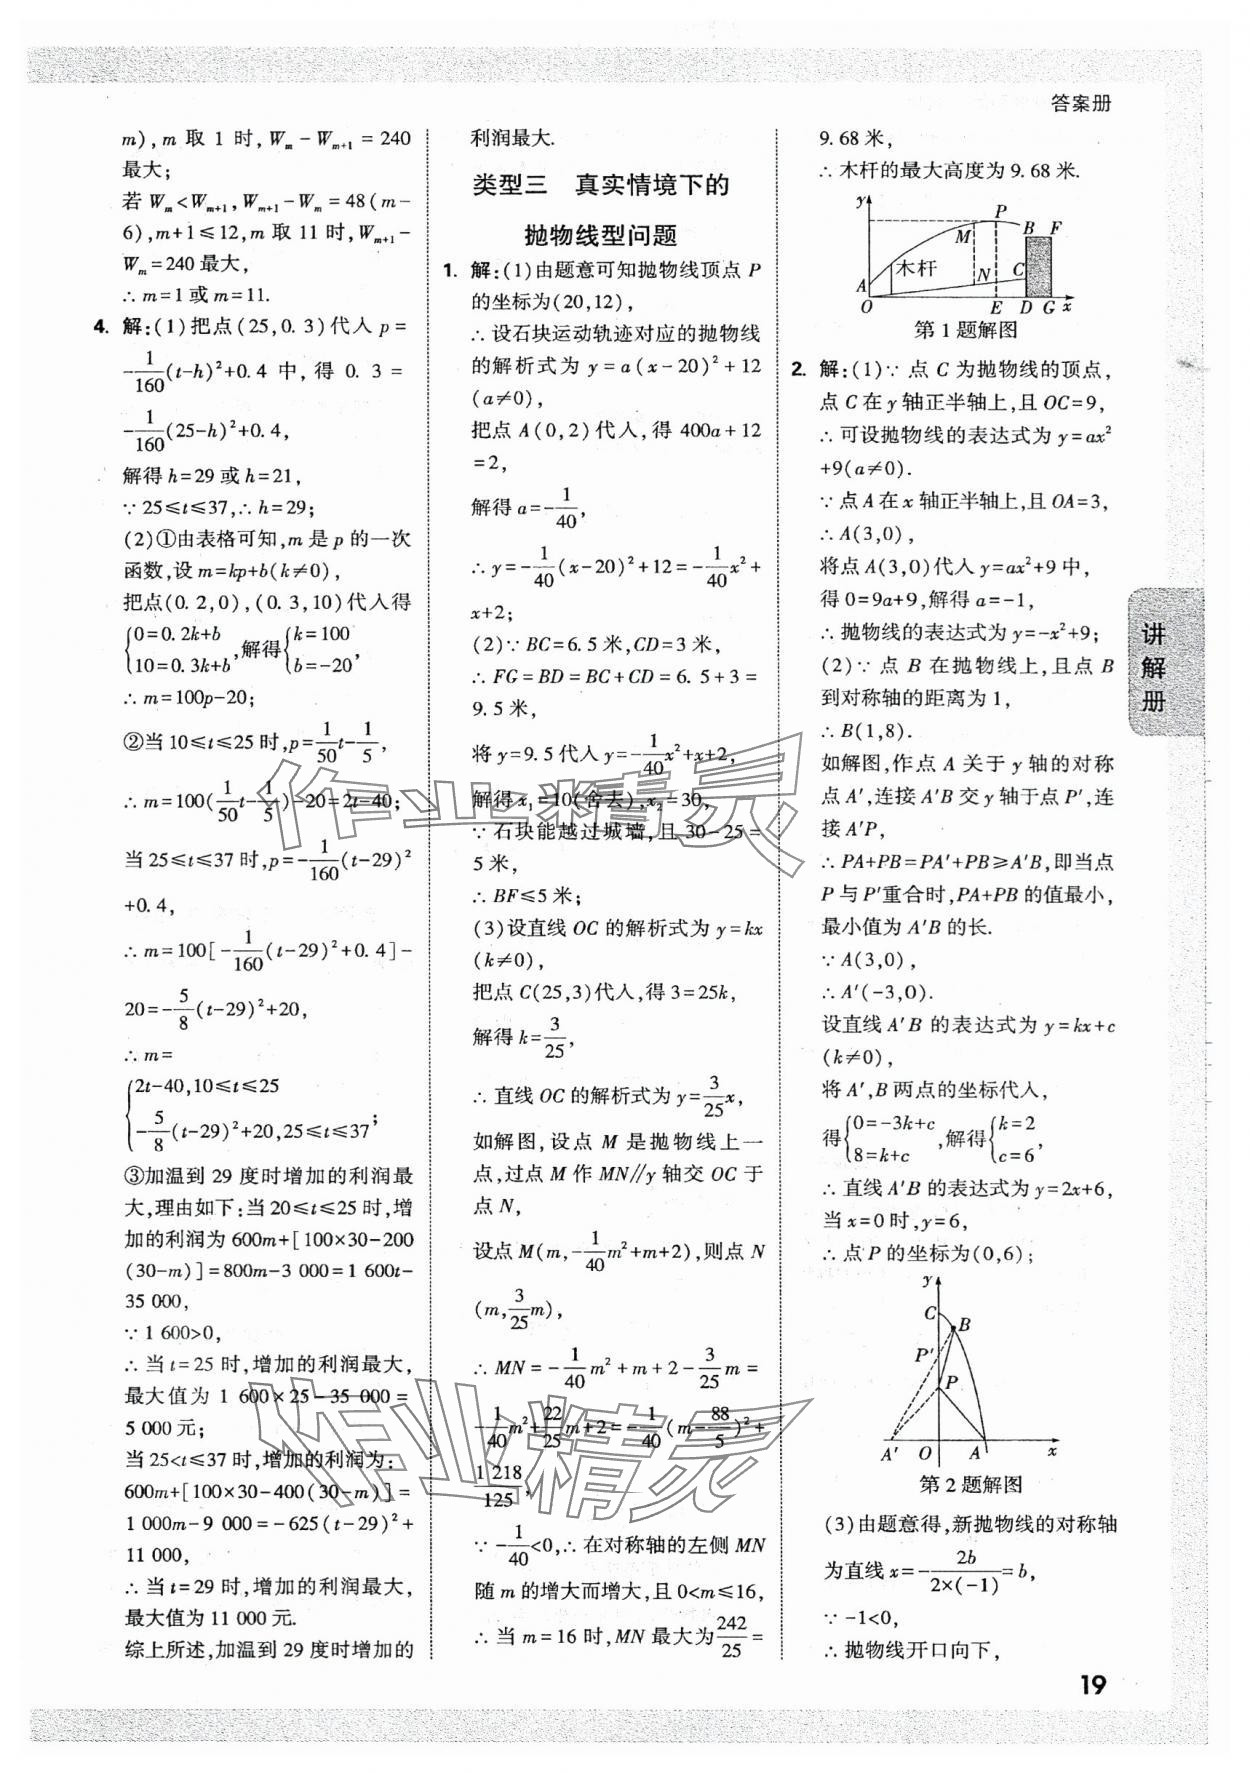 答案册
m),m 取 1 时,Wₘ-Wₘ₊₁=240
最大;
若 Wₘ<Wₘ₊₁,Wₘ₊₁-Wₘ=48(m-
6),m+1≤12,m 取 11 时,Wₘ₊₁-
Wₘ=240 最大,
∴m=1 或 m=11.
4. 解:(1)把点(25,0.3)代入 p=
-1/160(t-h)²+0.4 中,得 0.3=
-1/160(25-h)²+0.4,
解得 h=29 或 h=21,
∵25≤t≤37,∴h=29;
(2)①由表格可知,m 是 p 的一次
函数,设 m=kp+b(k≠0),
把点(0.2,0),(0.3,10)代入得
{0=0.2k+b
10=0.3k+b,解得{k=100
b=-20,
∴m=100p-20;
②当 10≤t≤25 时,p=1/50t-1/5,
∴m=100(1/50t-1/5)-20=2t-40;
当 25≤t≤37 时,p=-1/160(t-29)²
+0.4,
∴m=100[-1/160(t-29)²+0.4]-
20=-5/8(t-29)²+20,
∴m=
{2t-40,10≤t≤25
-5/8(t-29)²+20,25≤t≤37;
③加温到 29 度时增加的利润最
大,理由如下:当 20≤t≤25 时,增
加的利润为 600m+[100×30-200
(30-m)]=800m-3 000=1 600t-
35 000,
∵1 600>0,
∴当 t=25 时,增加的利润最大,
最大值为 1 600×25-35 000=
5 000 元;
当 25<t≤37 时,增加的利润为:
600m+[100×30-400(30-m)]=
1 000m-9 000=-625(t-29)²+
11 000,
∴当 t=29 时,增加的利润最大,
最大值为 11 000 元.
综上所述,加温到 29 度时增加的
利润最大.
类型三 真实情境下的
抛物线型问题
1. 解:(1)由题意可知抛物线顶点 P
的坐标为(20,12),
∴设石块运动轨迹对应的抛物线
的解析式为 y=a(x-20)²+12
(a≠0),
把点 A(0,2)代入,得 400a+12
=2,
解得 a=-1/40,
∴y=-1/40(x-20)²+12=-1/40x²+
x+2;
(2)∵BC=6.5 米,CD=3 米,
∴FG=BD=BC+CD=6.5+3=
9.5 米,
将 y=9.5 代入 y=-1/40x²+x+2,
解得 x₁=10(舍去),x₂=30,
∵石块能越过城墙,且 30-25=
5 米,
∴BF≤5 米;
(3)设直线 OC 的解析式为 y=kx
(k≠0),
把点 C(25,3)代入,得 3=25k,
解得 k=3/25,
∴直线 OC 的解析式为 y=3/25x,
如解图,设点 M 是抛物线上一
点,过点 M 作 MN//y 轴交 OC 于
点 N,
设点 M(m,-1/40m²+m+2),则点 N
(m,3/25m),
∴MN=-1/40m²+m+2-3/25m=
-1/40m²+22/25m+2=-1/40(m-88/5)²+
1 218/125,
∵-1/40<0,∴在对称轴的左侧 MN
随 m 的增大而增大,且 0<m≤16,
∴当 m=16 时,MN 最大为242/25=
9.68 米,
∴木杆的最大高度为 9.68 米.
y
P
M
B F
木杆
N C
A
O E D G x
第 1 题解图
2. 解:(1)∵点 C 为抛物线的顶点,
点 C 在 y 轴正半轴上,且 OC=9,
∴可设抛物线的表达式为 y=ax²
+9(a≠0).
∵点 A 在 x 轴正半轴上,且 OA=3,
∴A(3,0),
将点 A(3,0)代入 y=ax²+9 中,
得 0=9a+9,解得 a=-1,
∴抛物线的表达式为 y=-x²+9;
(2)∵点 B 在抛物线上,且点 B
到对称轴的距离为 1,
∴B(1,8).
如解图,作点 A 关于 y 轴的对称
点 A′,连接 A′B 交 y 轴于点 P′,连
接 A′P,
∴PA+PB=PA′+PB≥A′B,即当点
P 与 P′重合时,PA+PB 的值最小,
最小值为 A′B 的长.
∵A(3,0),
∴A′(-3,0).
设直线 A′B 的表达式为 y=kx+c
(k≠0),
将 A′,B 两点的坐标代入,
得{0=-3k+c
8=k+c,解得{k=2
c=6,
∴直线 A′B 的表达式为 y=2x+6,
当 x=0 时,y=6,
∴点 P 的坐标为(0,6);
y
C
B
P′
P
A′ O A x
第 2 题解图
(3)由题意得,新抛物线的对称轴
为直线 x=-2b/2×(-1)=b,
∵-1<0,
∴抛物线开口向下,
讲解册
19
作业精灵
作业精灵